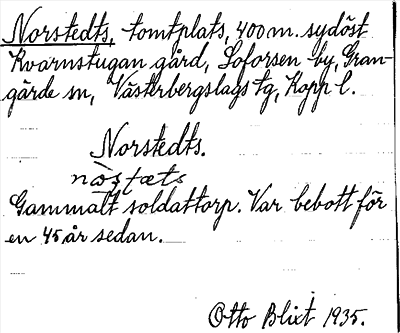 Norstedts, tomtplats, 400 m. sydöst
Kvarnstugan gård, Loforsen by, Gran-
gärde sn, Västerbergslags tg, Kopp l.
Norstedts.
nòṣtæts
Gammalt soldattorp. Var bebott för
en 45 år sedan.
Otto Blixt 1935.